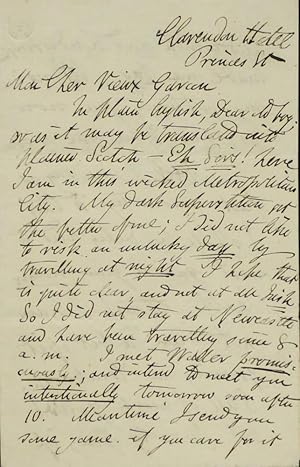 Clarendon Hotel
Princes St
Mon Cher Vieux Garcon
In plain English, Dear old boy,
or as it may be translated into
plainer Scotch – Eh Sirs! here
I am in this wicked Metropolitan
City. My dark superstition got
the better of me; I did not like
to risk an unlucky day by
travelling at night. I hope that
is quite clear, and not at all Irish
So I did not stay at Newcastle
and have been travelling since 8
a.m. I met Waller promis-
cuously; and intend to meet you
intentionally tomorrow soon after
10. Meantime I send you
some game. if you care for it